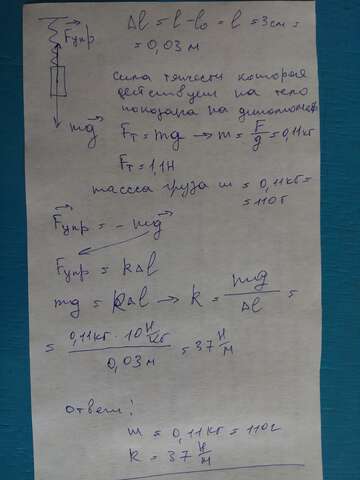 Δl = l - l₀ = l = 3 см =
= 0,03 м
Fупр
сила тяжести которая
действует на тело
показана на динамометре
mg
Fт = mg → m = F/g = 0,11 кг
Fт = 1,1 Н
масса груза m = 0,11 кг =
= 110 г
Fупр = - mg
Fупр = kΔl
mg = kΔl → k = mg/Δl =
= 0,11 кг · 10 Н/кг / 0,03 м = 37 Н/м
Ответ:
m = 0,11 кг = 110 г
k = 37 Н/м